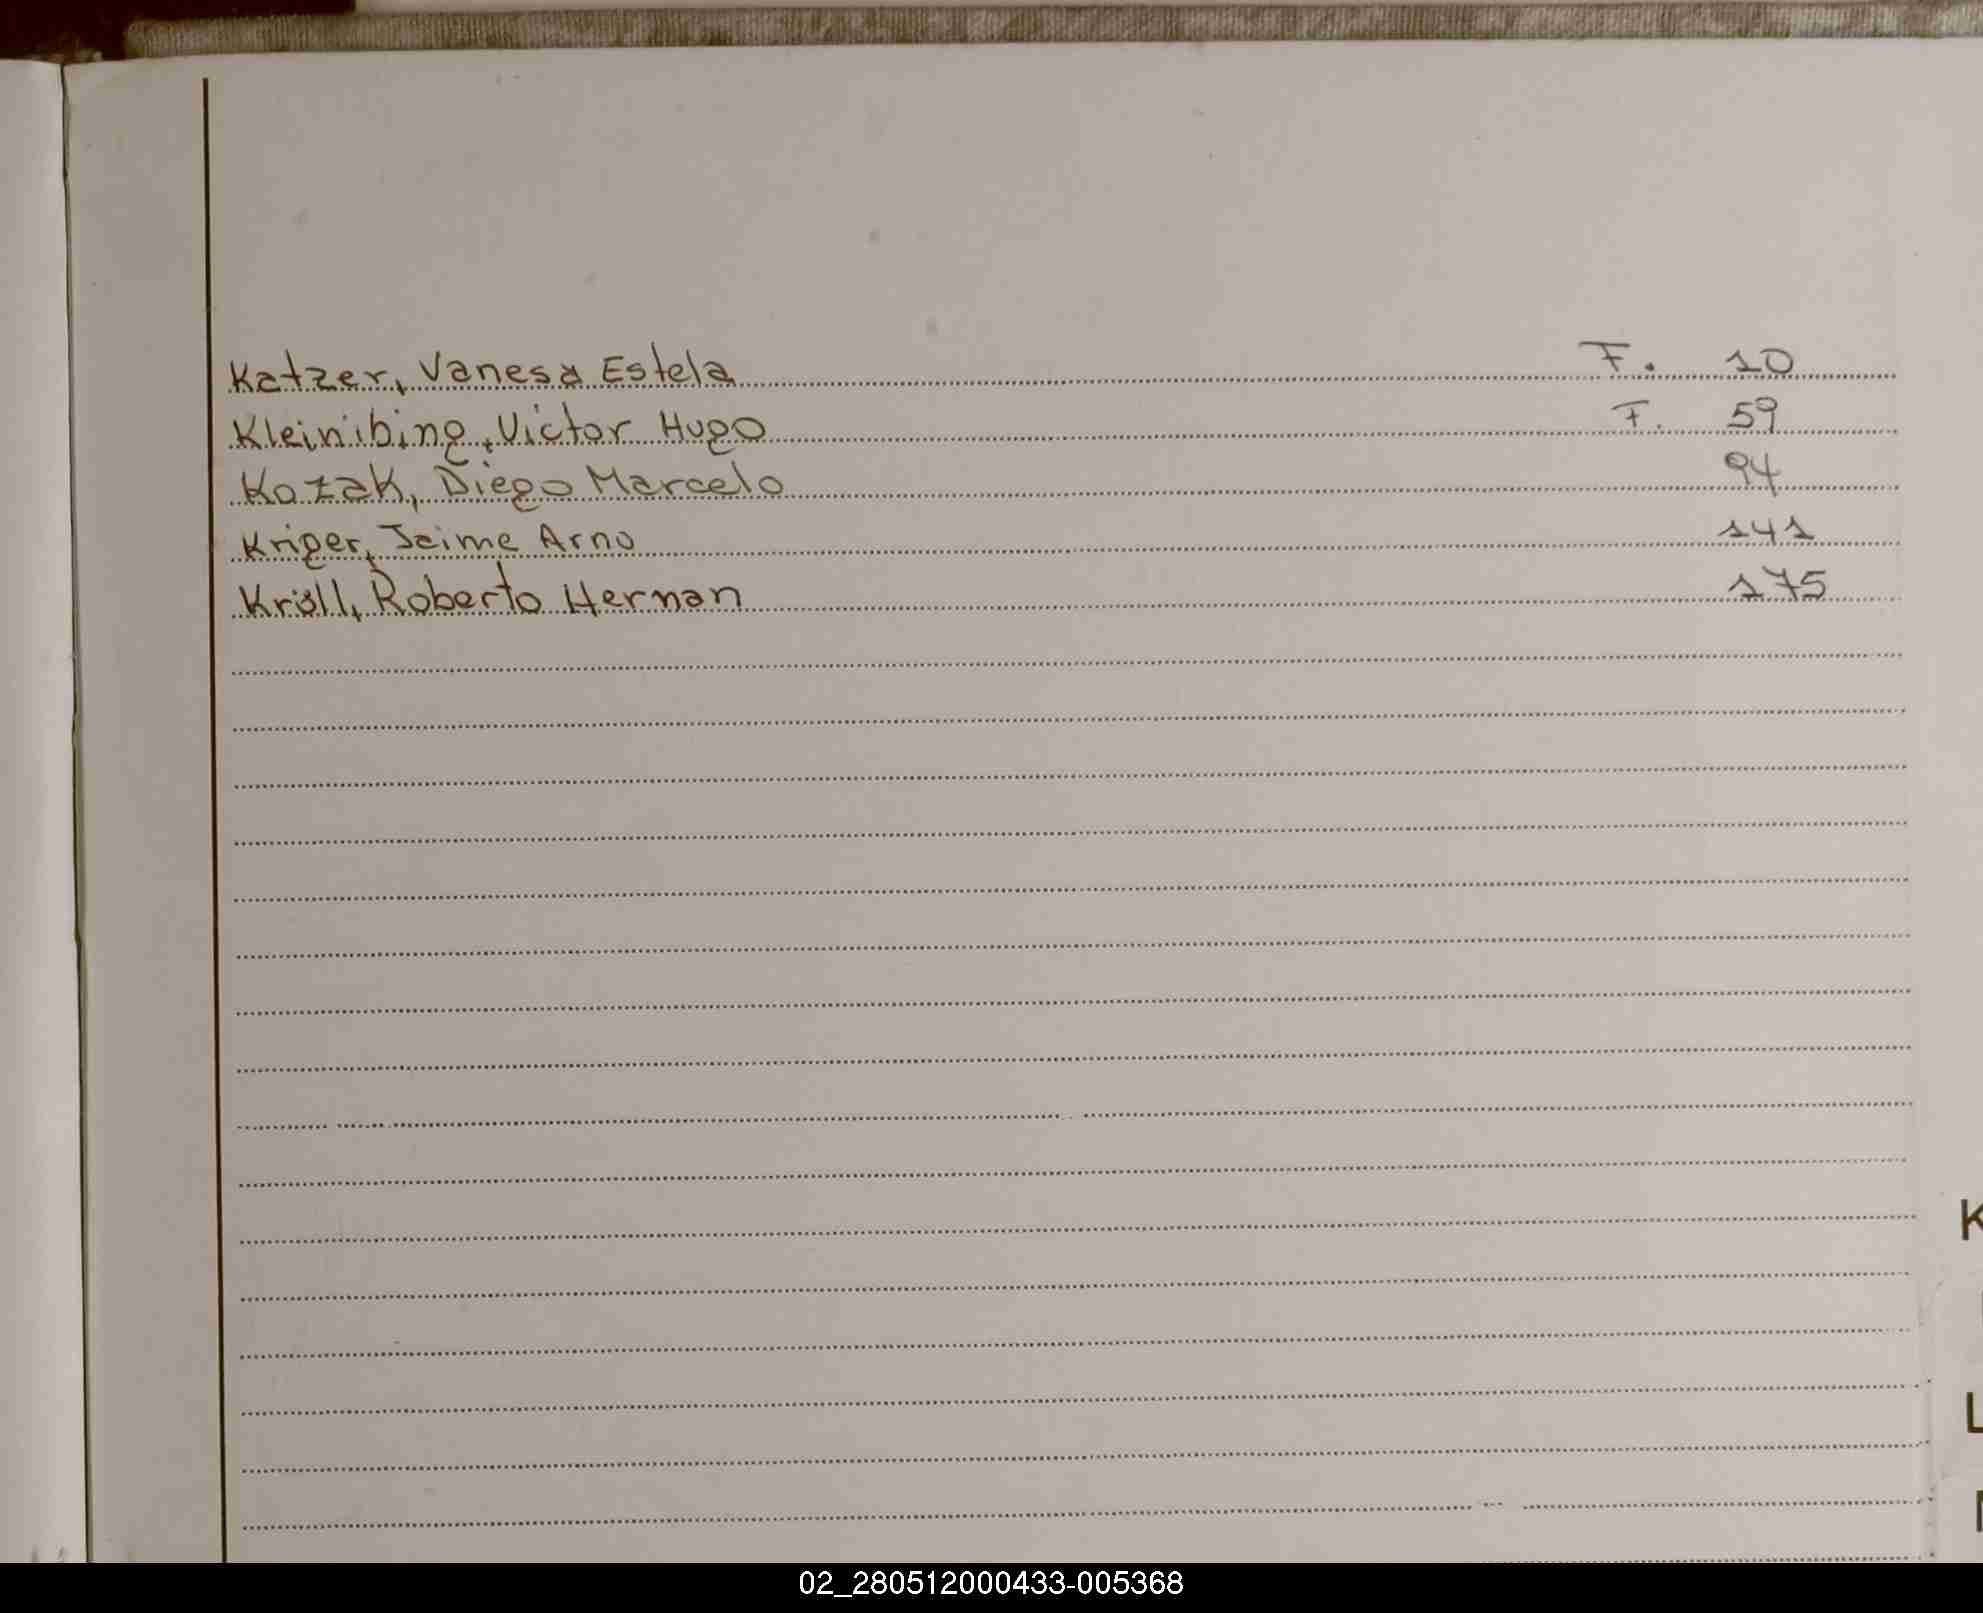 Katzer, Vanesa Estela F. 10
Kleinibing, Victor Hugo F. 59
Kozak, Diego Marcelo 94
Kriger, Jaime Arno 141
Kröll, Roberto Hernan 175
K
L
02_280512000433-005368